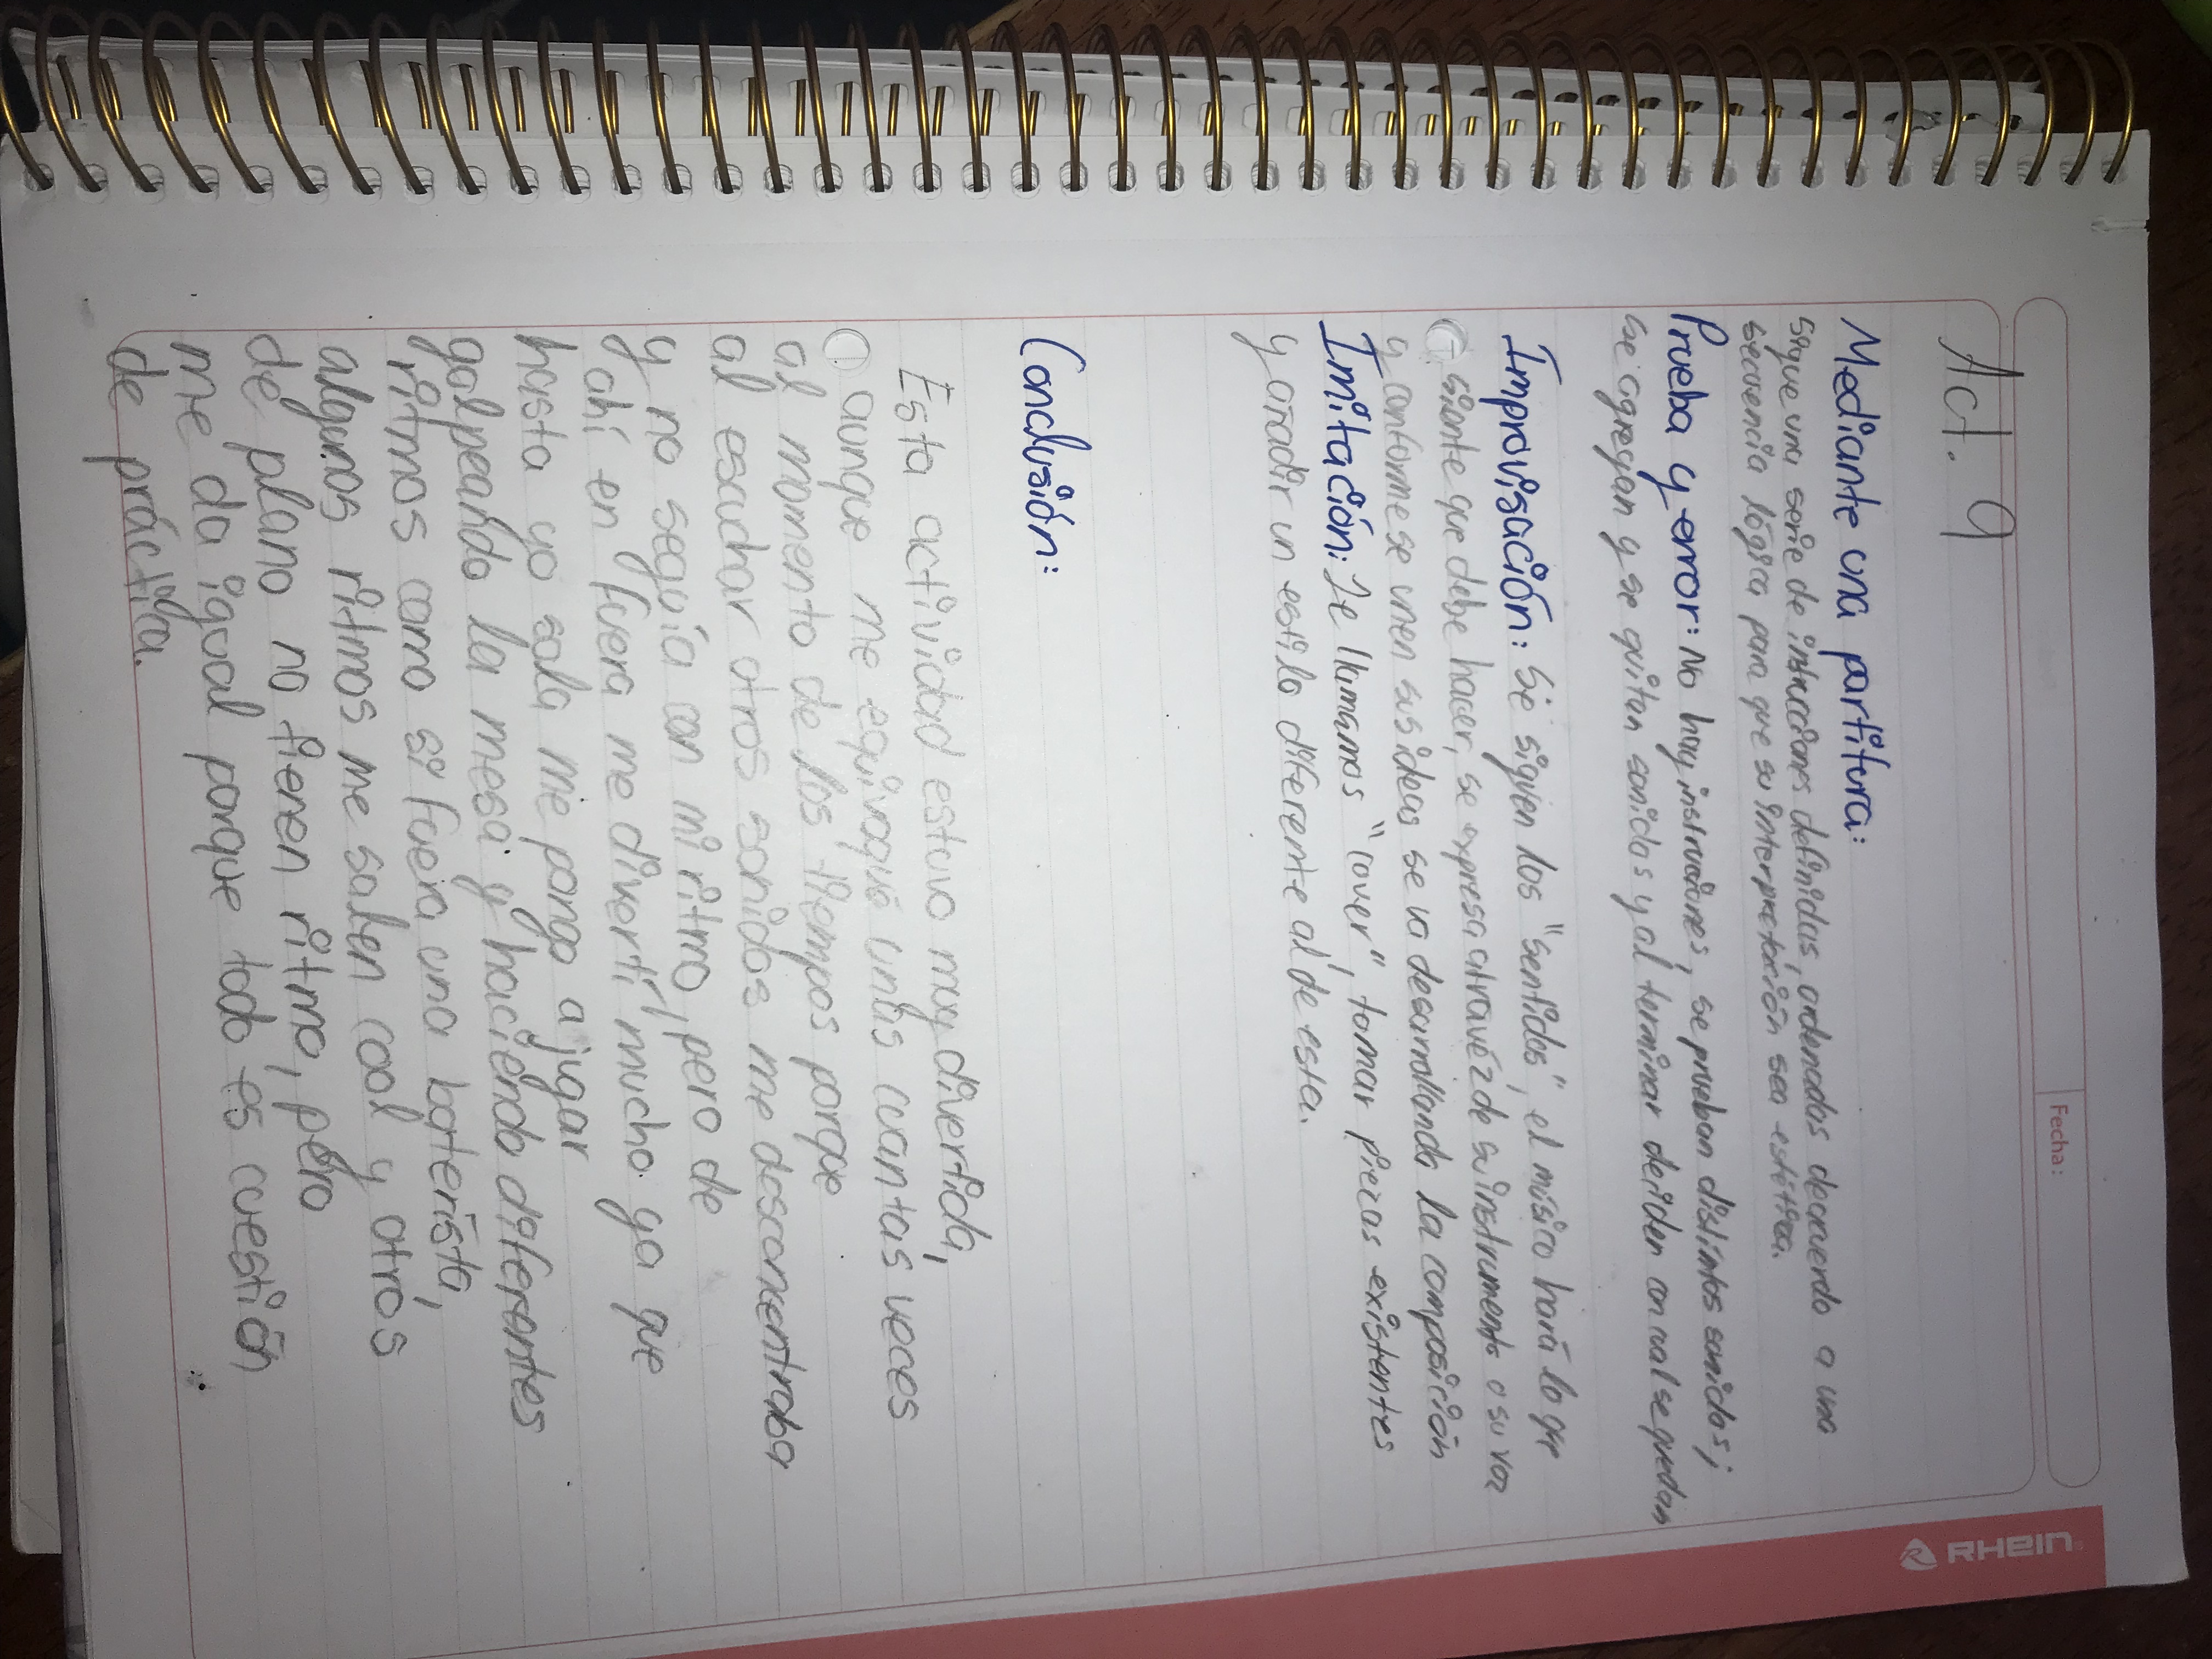 Fecha:
Act. 9
Mediante una partitura:
sigue una serie de instrucciones definidas, ordenadas deacuerdo a una
secuencia lógica para que su interpretación sea estética.
Prueba y error: no hay instrucciones, se prueban distintos sonidos;
se agregan y se quitan sonidos y al terminar deciden con cual se quedan
Improvisación: Se siguen los "sentidos", el músico hará lo que
siente que debe hacer, se expresa atravéz de su instrumento o su voz
y conforme se unen sus ideas se va desarrollando la composición
Imitación: Le llamamos "cover", tomar piezas existentes
y añadir un estilo diferente al de esta.
Conclusión:
Esta actividad estuvo muy divertida,
aunque me equivoqué unas cuantas veces
al momento de los tiempos porque
al escuchar otros sonidos me desconcentraba
y no seguía con mi ritmo, pero de
ahí en fuera me divertí mucho ya que
hasta yo sola me pongo a jugar
golpeando la mesa y haciendo diferentes
ritmos como si fuera una baterista,
algunos ritmos me salen cool y otros
de plano no tienen ritmo, pero
me da igual porque todo es cuestión
de práctica.
RHEIN